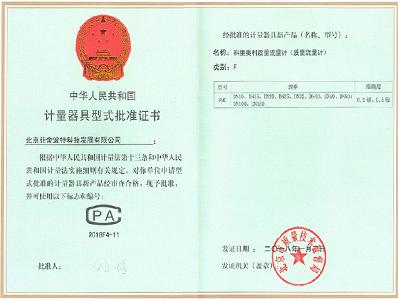 中华人民共和国
计量器具型式批准证书
北京菲舍波特科技发展有限公司：
根据中华人民共和国计量法第十三条和中华人民
共和国计量法实施细则有关规定，对你单位申请型
式批准的计量器具新产品经审查合格，现予批准，
并可使用以下标志和编号：
CPA
2018F4-11
批准人：
经批准的计量器具新产品（名称、型号）：
名称：科里奥利质量流量计（质量流量计）
类别：F
型号 规格 准确度
发证日期：二〇一八年一月
发证机关（盖章）：
北京市质量技术监督局